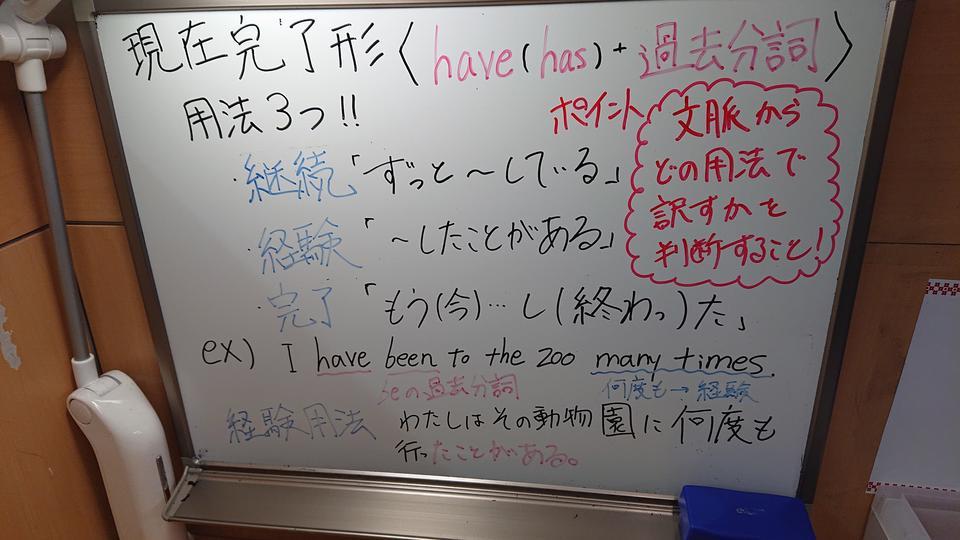 現在完了形〈have(has)+過去分詞〉
用法3つ!!
ポイント
文脈から
どの用法で
訳すかを
判断すること!
・継続「ずっと〜している」
・経験「〜したことがある」
・完了「もう(今)…し(終わっ)た」
ex) I have been to the zoo many times.
beの過去分詞 何度も→経験
経験用法 わたしはその動物園に何度も
行ったことがある。